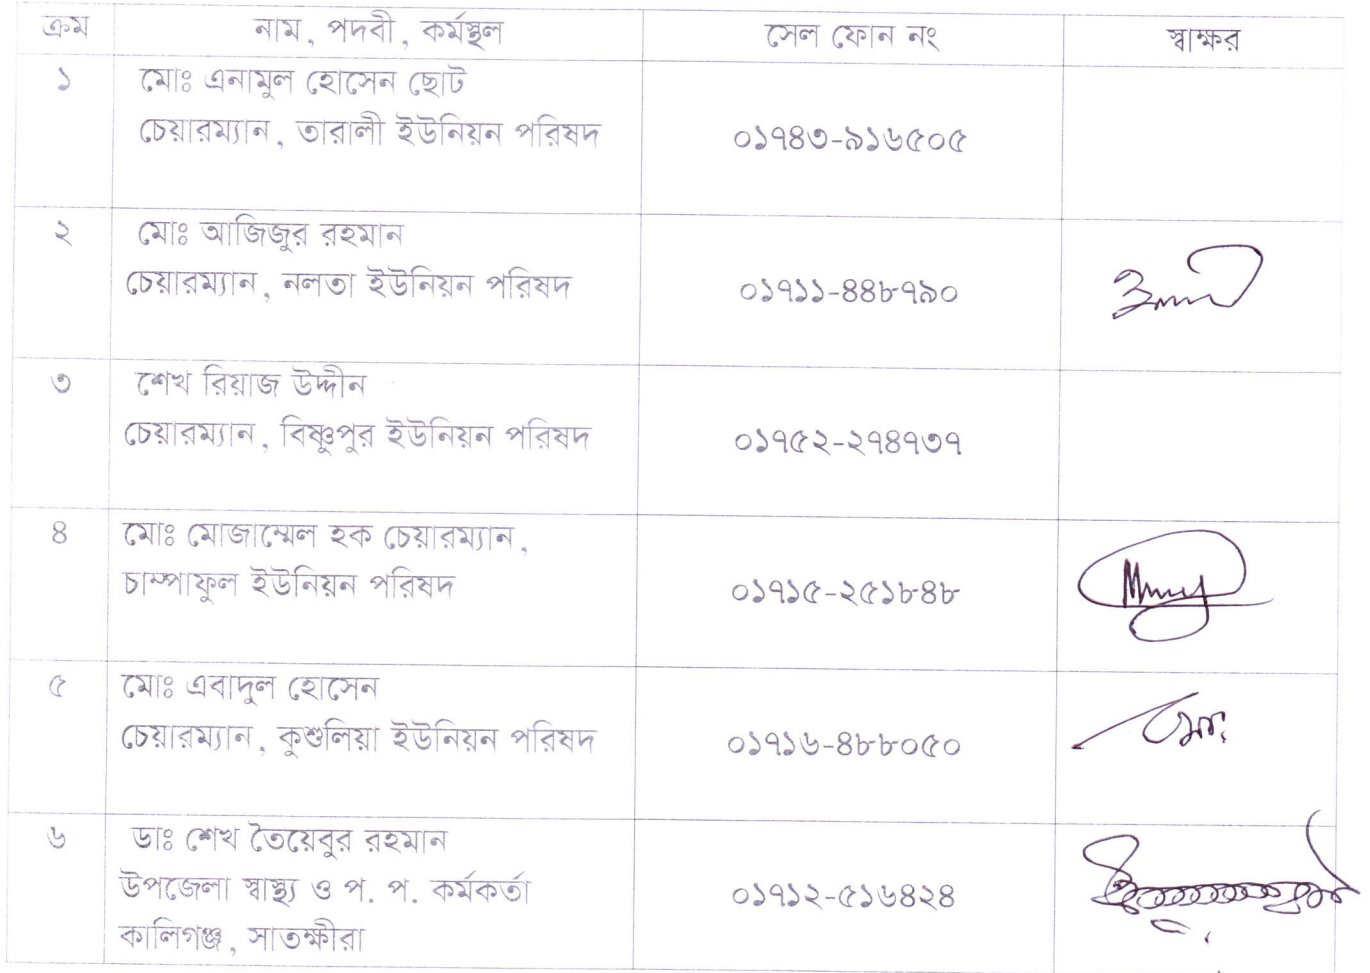 ক্রম নাম, পদবী, কর্মস্থল সেল ফোন নং স্বাক্ষর
১ মোঃ এনামুল হোসেন ছোট
চেয়ারম্যান, তারালী ইউনিয়ন পরিষদ ০১৭৪৩-৯১৬৫০৫
২ মোঃ আজিজুর রহমান
চেয়ারম্যান, নলতা ইউনিয়ন পরিষদ ০১৭১১-৪৪৮৭৯০
৩ শেখ রিয়াজ উদ্দীন
চেয়ারম্যান, বিষ্ণুপুর ইউনিয়ন পরিষদ ০১৭৫২-২৭৪৭৩৭
৪ মোঃ মোজাম্মেল হক চেয়ারম্যান,
চাম্পাফুল ইউনিয়ন পরিষদ ০১৭১৫-২৫১৮৪৮
৫ মোঃ এবাদুল হোসেন
চেয়ারম্যান, কুশুলিয়া ইউনিয়ন পরিষদ ০১৭১৬-৪৮৮০৫০
৬ ডাঃ শেখ তৈয়েবুর রহমান
উপজেলা স্বাস্থ্য ও প. প. কর্মকর্তা ০১৭১২-৫১৬৪২৪
কালিগঞ্জ, সাতক্ষীরা